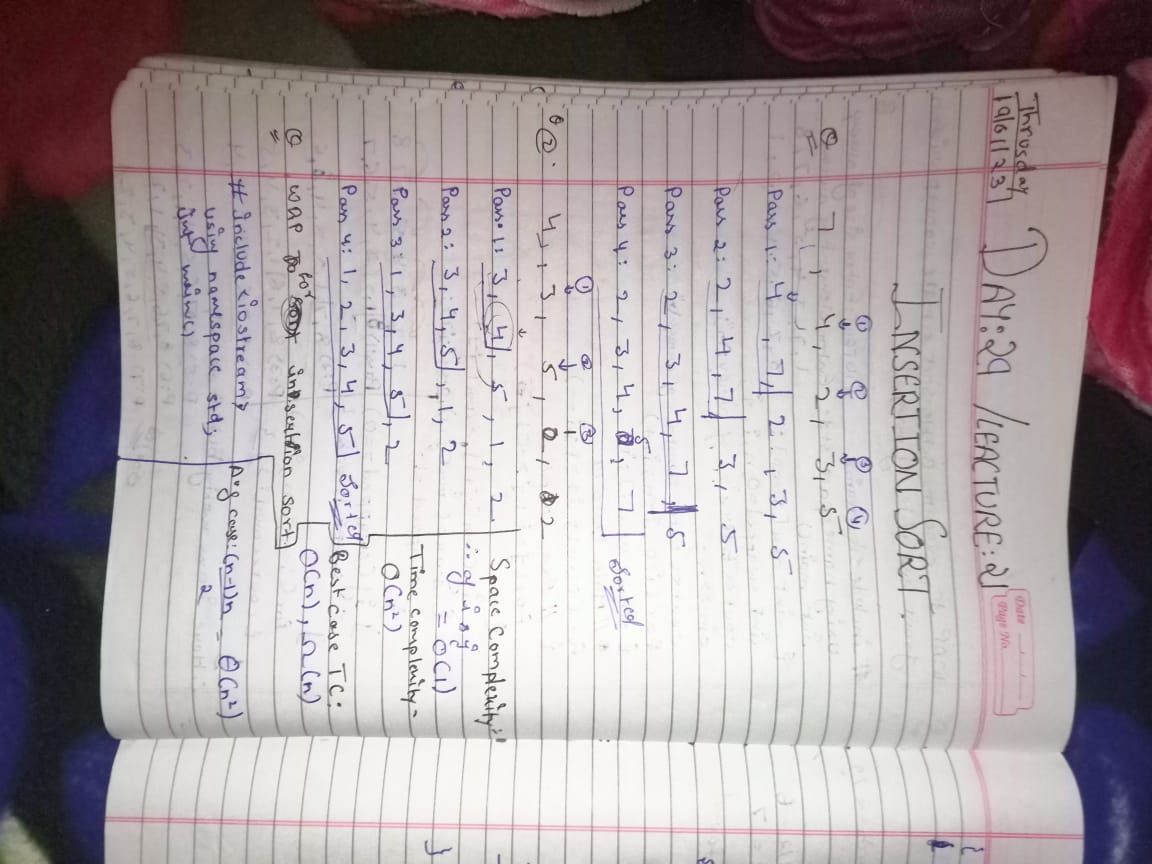 Thrusday
19/01/23
DAY:29 /LEACTURE:21
Date
Page No.
INSERTION SORT.
① ② ③ ④
Q 7, 4, 2, 3, 5
Pass 1: 4, 7, 2, 3, 5
Pass 2: 2, 4, 7, 3, 5
Pass 3: 2, 3, 4, 7, 5
Pass 4: 2, 3, 4, 5, 7 Sorted
① ② ③
Q②. 4, 3, 5, 1, 2
Pass 1: 3, 4, 5, 1, 2
Pass 2: 3, 4, 5, 1, 2
Pass 3: 1, 3, 4, 5, 2
Pass 4: 1, 2, 3, 4, 5 Sorted
Space Complexity:
= O(1)
Time complexity-
O(n²)
Best case TC:
O(n), Ω(n)
Q WAP for insertion sort
# include<iostream>
using namespace std;
int main()
Avg case: (n-1)n/2 = Θ(n²)